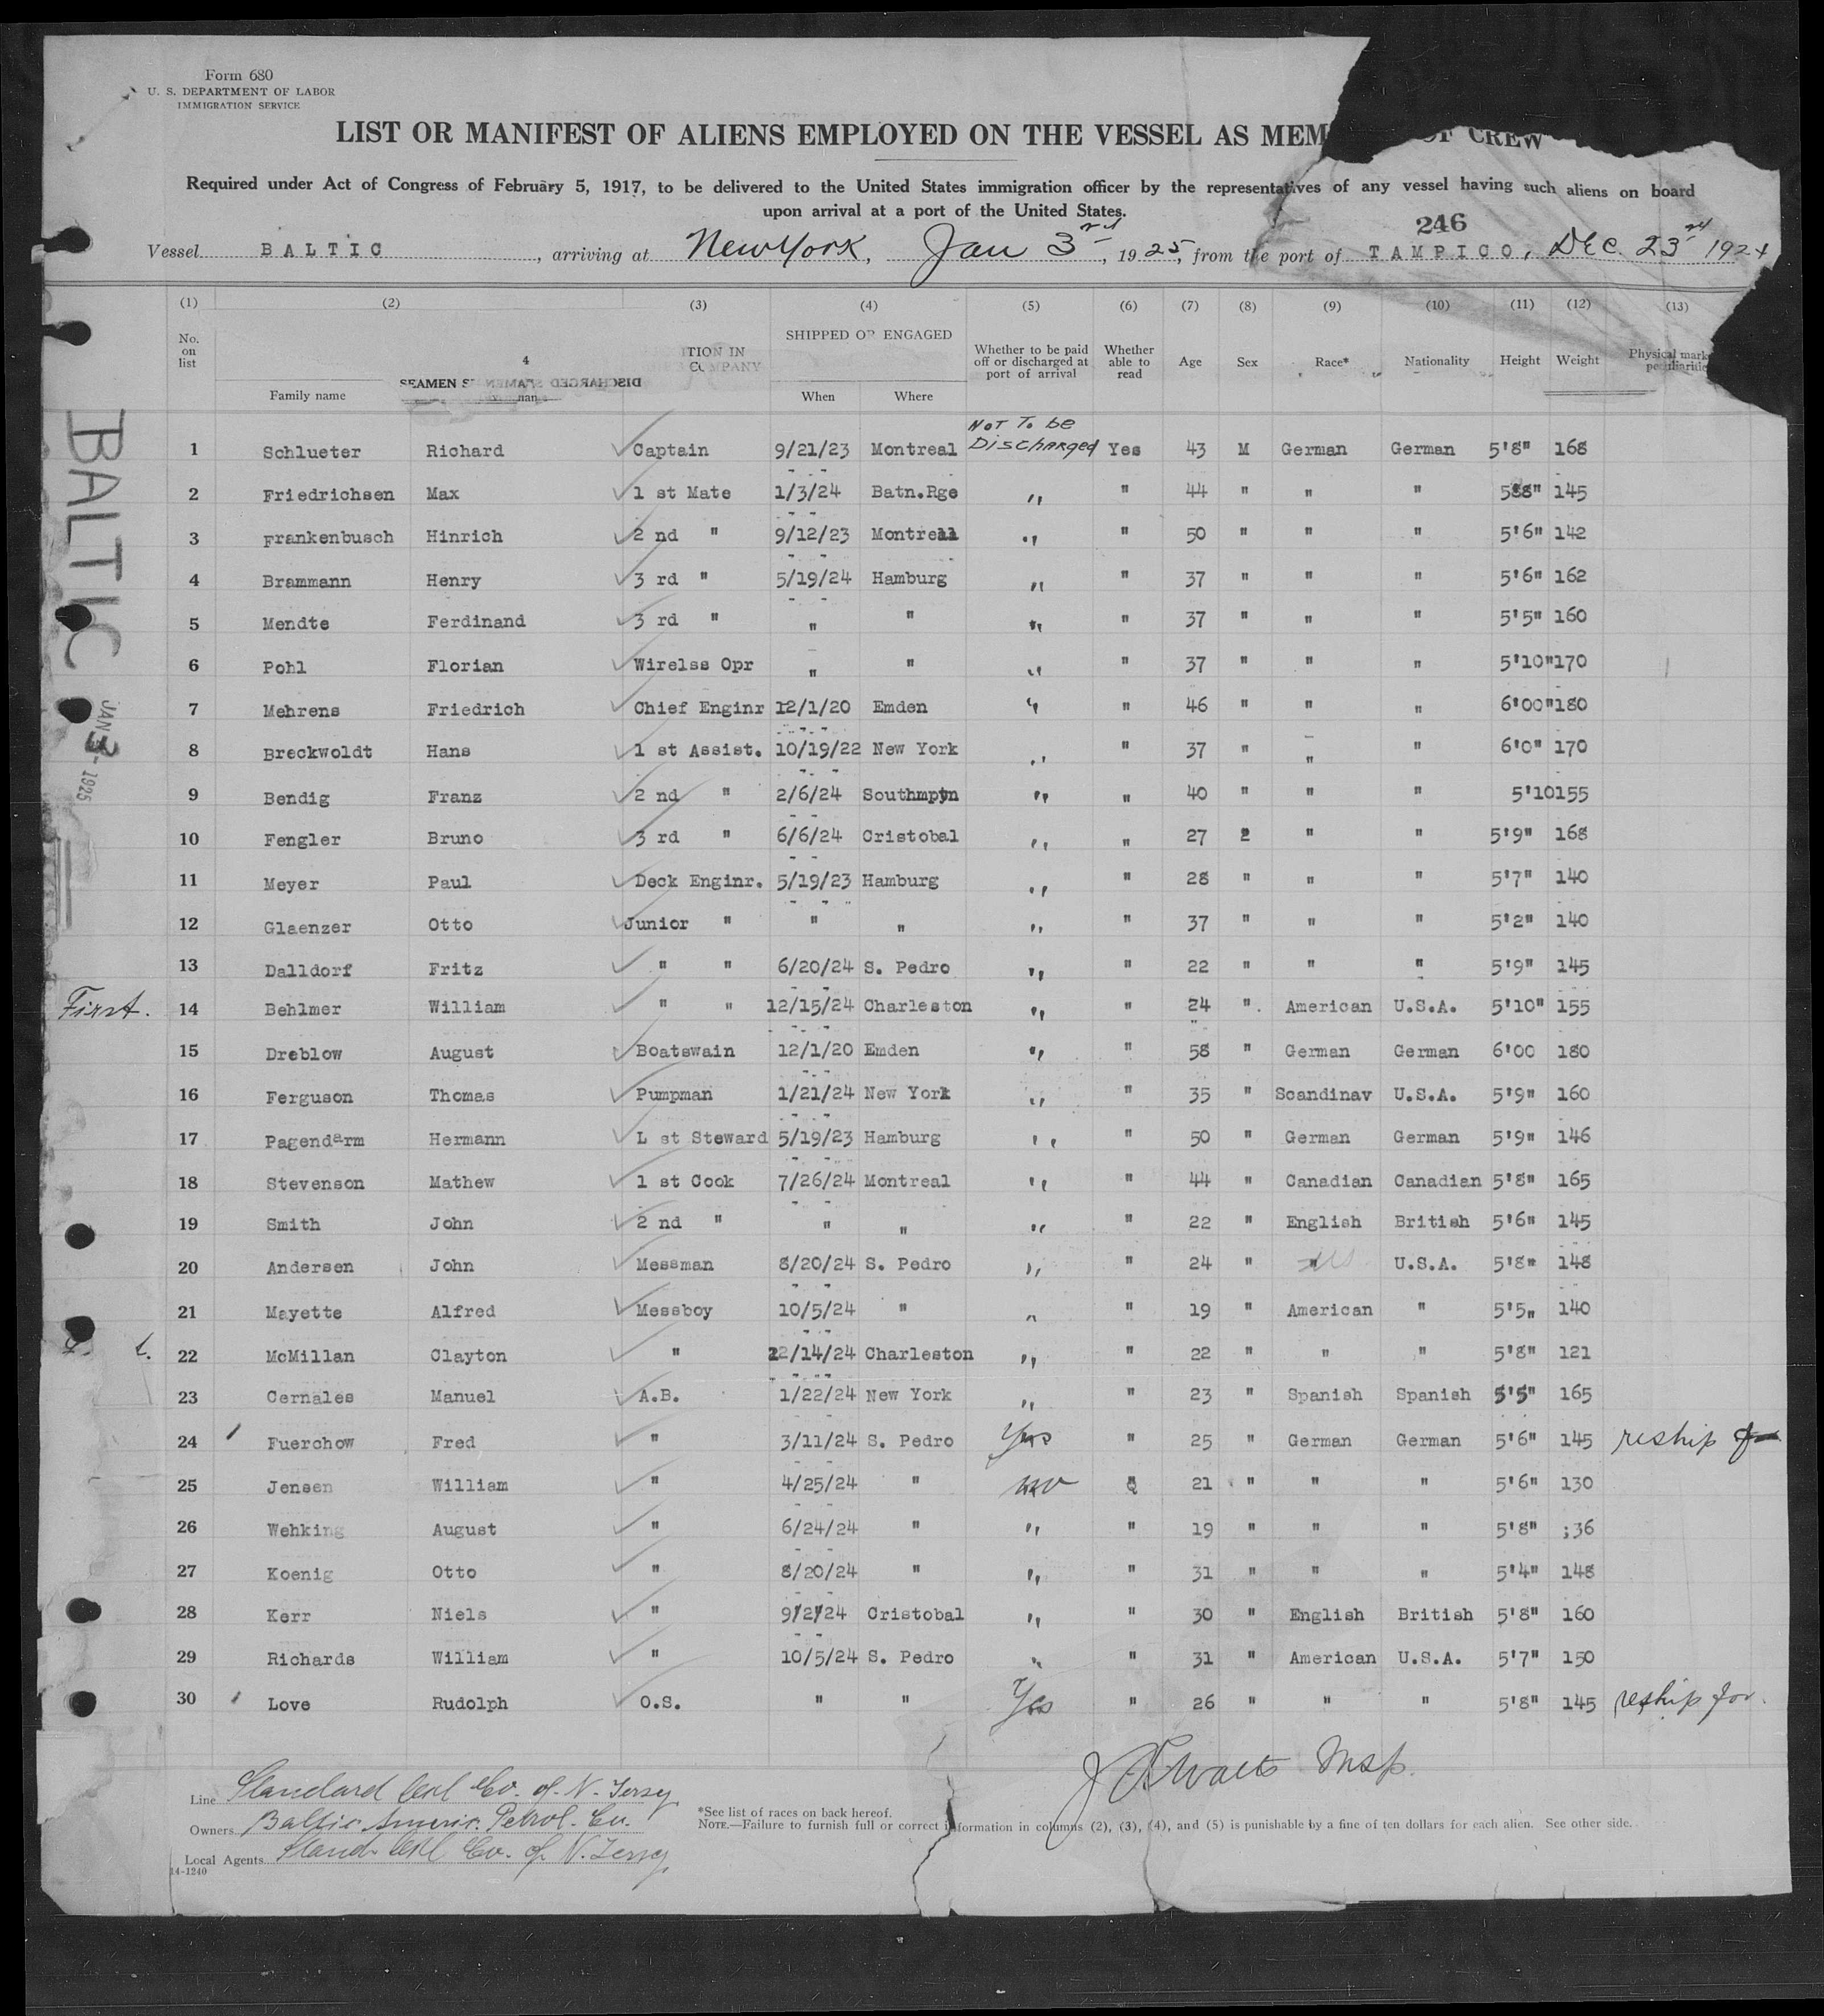 Form 680
U. S. DEPARTMENT OF LABOR
IMMIGRATION SERVICE
LIST OR MANIFEST OF ALIENS EMPLOYED ON THE VESSEL AS MEM OF CREW
Required under Act of Congress of February 5, 1917, to be delivered to the United States immigration officer by the representatives of any vessel having such aliens on board
upon arrival at a port of the United States.
246
Vessel BALTIC, arriving at New York, Jan 3rd, 1925, from the port of TAMPICO, DEC. 23rd 1924
(1) (2) (3) (4) (5) (6) (7) (8) (9) (10) (11) (12) (13)
No. on list Family name SHIPPED OR ENGAGED When Where Whether to be paid off or discharged at port of arrival Whether able to read Age Sex Race* Nationality Height Weight Physical mark
4
TION IN COMPANY
SEAMEN DISCHARGED SEAMEN
BALTIC
JAN 3 - 1925
Not To be
1 Schlueter Richard Captain 9/21/23 Montreal Discharged Yes 43 M German German 5'8" 168
2 Friedrichsen Max 1 st Mate 1/3/24 Batn.Rge " " 44 " " " 588" 145
3 Frankenbusch Hinrich 2 nd " 9/12/23 Montreal " " 50 " " " 5'6" 142
4 Brammann Henry 3 rd " 5/19/24 Hamburg " " 37 " " " 5'6" 162
5 Mendte Ferdinand 3 rd " " " " " 37 " " " 5'5" 160
6 Pohl Florian Wirelss Opr " " " " 37 " " " 5'10" 170
7 Mehrens Friedrich Chief Enginr 12/1/20 Emden " " 46 " " " 6'00" 180
8 Breckwoldt Hans 1 st Assist. 10/19/22 New York " " 37 " " " 6'0" 170
9 Bendig Franz 2 nd " 2/6/24 Southmptn " " 40 " " " 5'10 155
10 Fengler Bruno 3 rd " 6/6/24 Cristobal " " 27 2 " " 5'9" 168
11 Meyer Paul Deck Enginr. 5/19/23 Hamburg " " 28 " " " 5'7" 140
12 Glaenzer Otto Junior " " " " " 37 " " " 5'2" 140
13 Dalldorf Fritz " " 6/20/24 S. Pedro " " 22 " " " 5'9" 145
First. 14 Behlmer William " " 12/15/24 Charleston " " 24 ". American U.S.A. 5'10" 155
15 Dreblow August Boatswain 12/1/20 Emden " " 58 " German German 6'00 180
16 Ferguson Thomas Pumpman 1/21/24 New York " " 35 " Scandinav U.S.A. 5'9" 160
17 Pagendarm Hermann L st Steward 5/19/23 Hamburg " " 50 " German German 5'9" 146
18 Stevenson Mathew 1 st Cook 7/26/24 Montreal " " 44 " Canadian Canadian 5'8" 165
19 Smith John 2 nd " " " " " 22 " English British 5'6" 145
20 Andersen John Messman 8/20/24 S. Pedro " " 24 " U.S.A. 5'8" 148
21 Mayette Alfred Messboy 10/5/24 " " " 19 " American " 5'5" 140
22 McMillan Clayton " 12/14/24 Charleston " " 22 " " " 5'8" 121
23 Cernales Manuel A.B. 1/22/24 New York " " 23 " Spanish Spanish 5'5" 165
24 Fuerchow Fred " 3/11/24 S. Pedro Yes " 25 " German German 5'6" 145 reship for
25 Jensen William " 4/25/24 " no " 21 " " " 5'6" 130
26 Wehking August " 6/24/24 " " " 19 " " " 5'8" ;36
27 Koenig Otto " 8/20/24 " " " 31 " " " 5'4" 148
28 Kerr Niels " 9/2/24 Cristobal " " 30 " English British 5'8" 160
29 Richards William " 10/5/24 S. Pedro " " 31 " American U.S.A. 5'7" 150
30 Love Rudolph O.S. " " Yes " 26 " " " 5'8" 145 reship for.
Insp.
Line Standard Oil Co. of N. Jersey
Owners Baltic Americ. Petrol. Co.
Local Agents Stand. Oil Co. of N. Jersey
14-1240
*See list of races on back hereof.
NOTE.—Failure to furnish full or correct information in columns (2), (3), (4), and (5) is punishable by a fine of ten dollars for each alien. See other side.